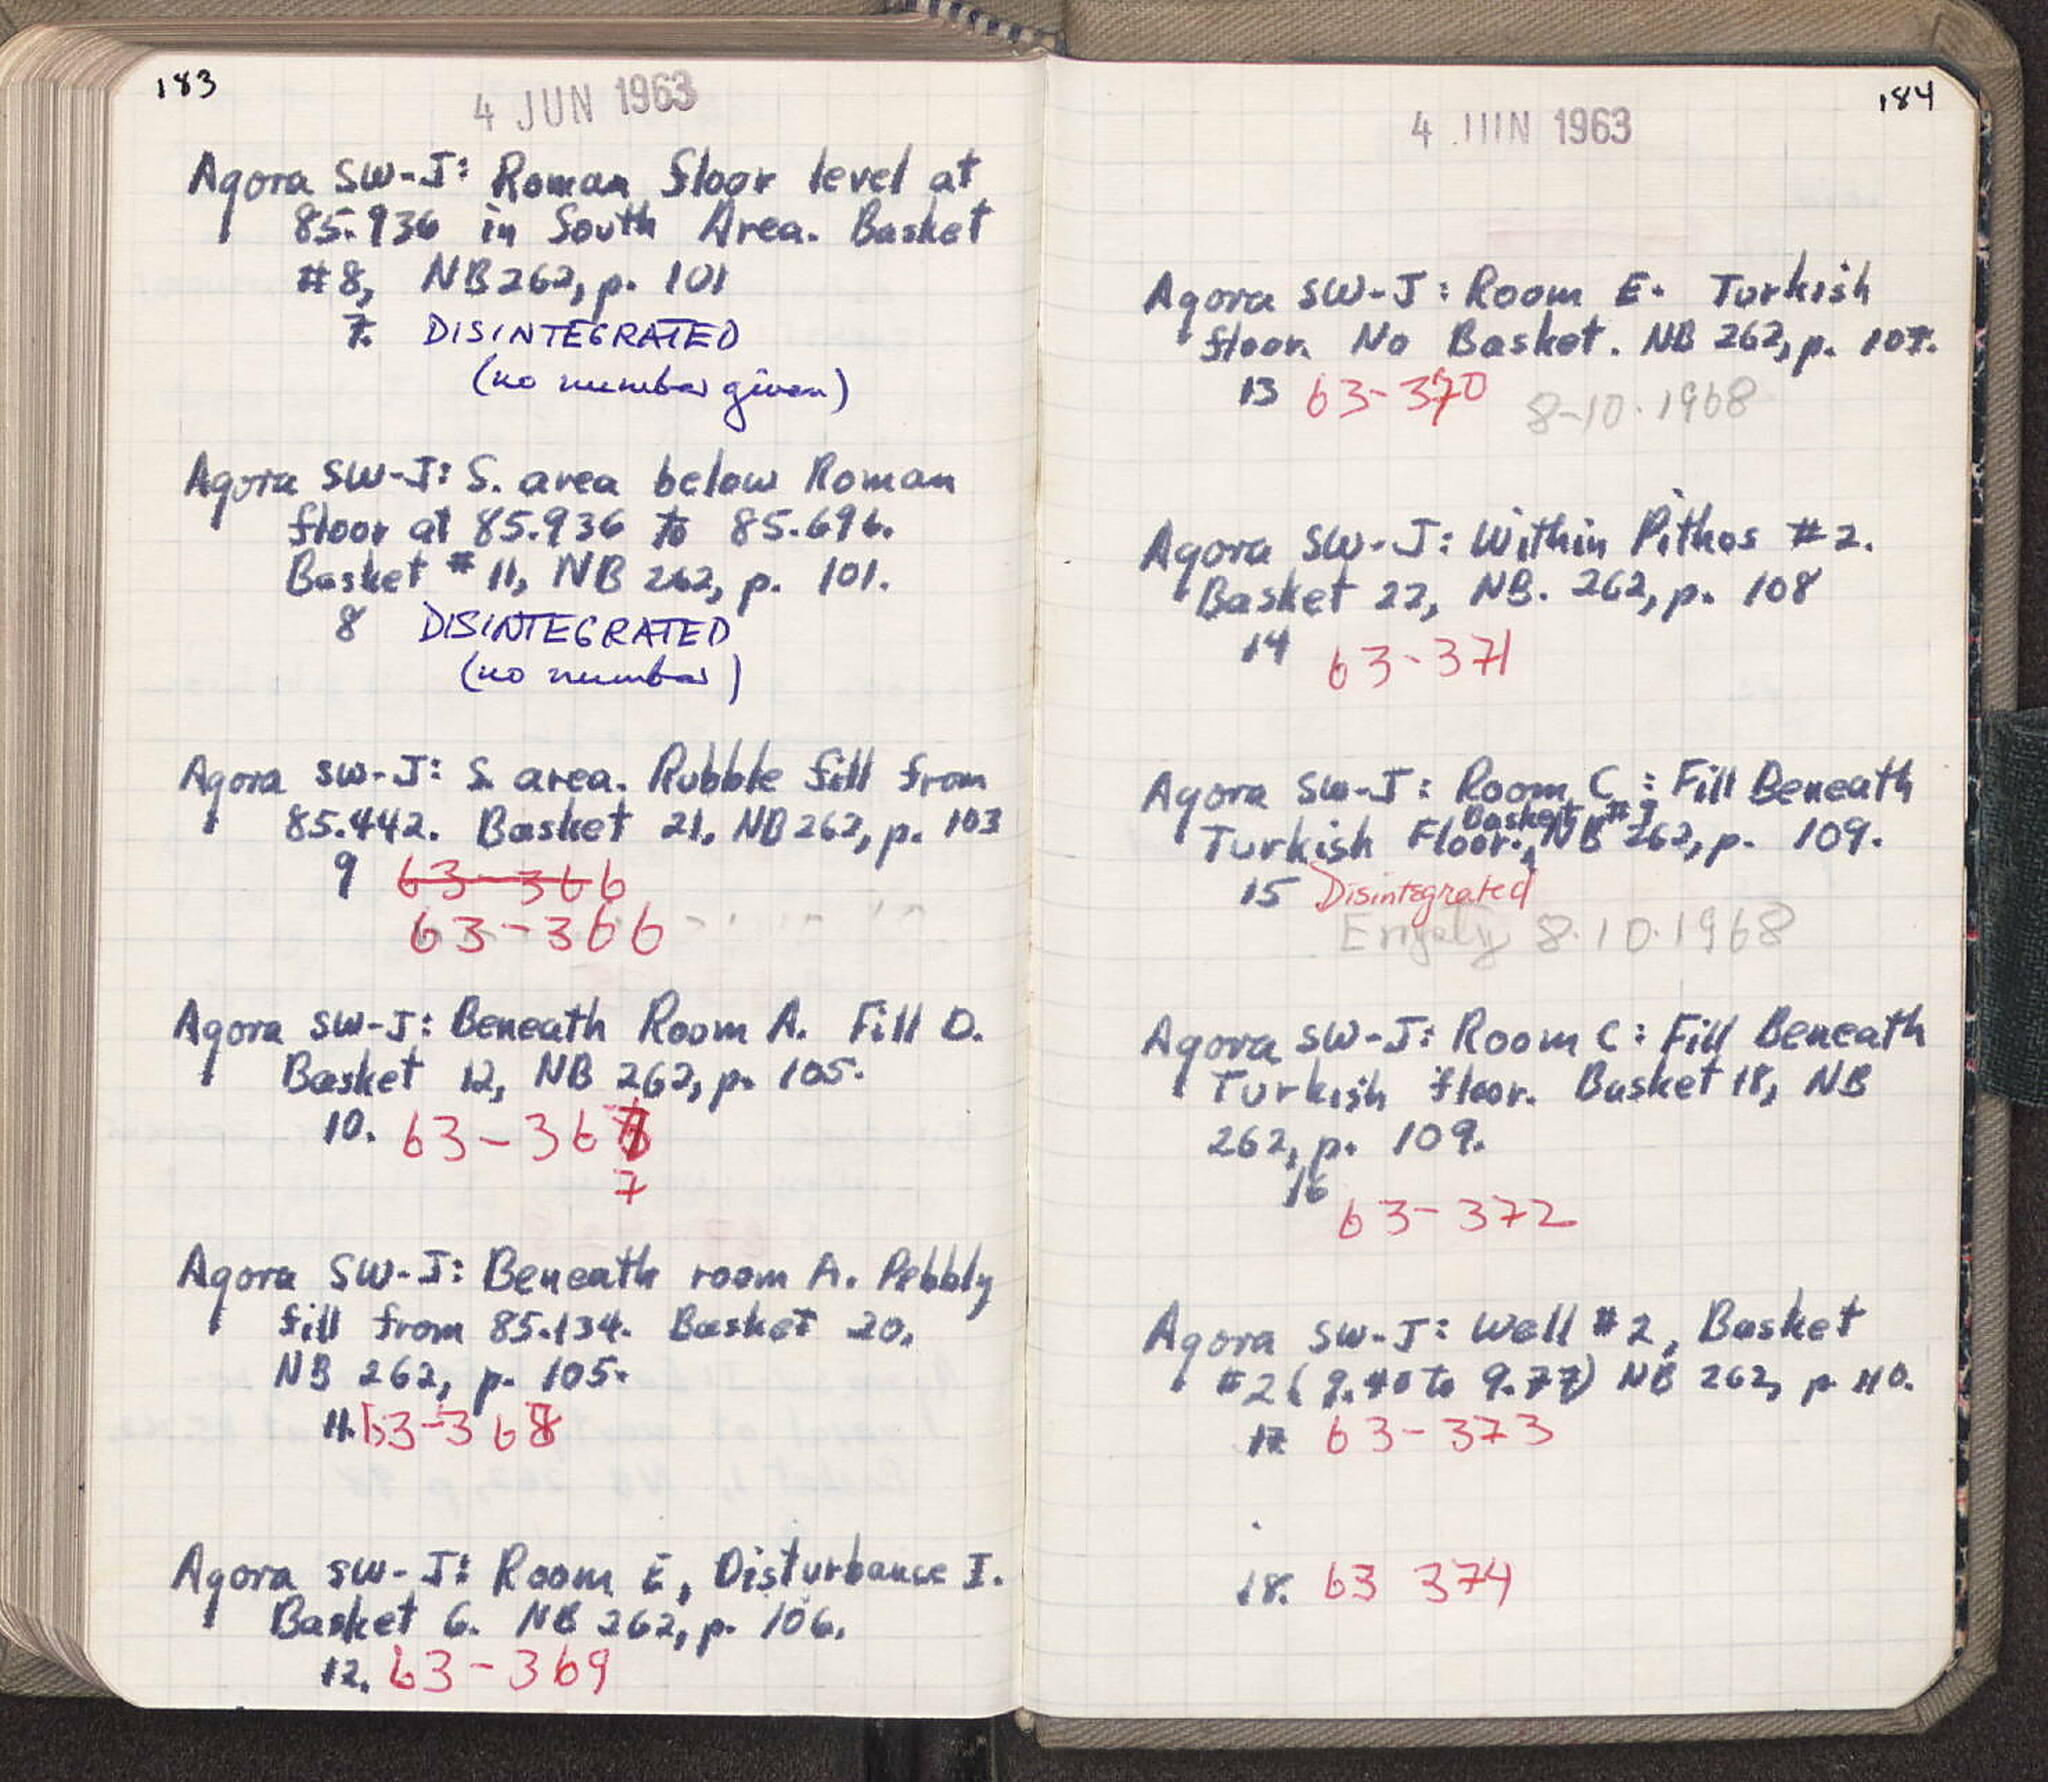 183
4 JUN 1963
Agora SW-J: Roman floor level at
85.936 in South Area. Basket
#8, NB 262, p. 101
7. DISINTEGRATED
(no number given)
Agora SW-J: S. area below Roman
floor at 85.936 to 85.696.
Basket # 11, NB 262, p. 101.
8 DISINTEGRATED
(no number)
Agora SW-J: S. area. Rubble fill from
85.442. Basket 21, NB 262, p. 103
9 63-366
63-366
Agora SW-J: Beneath Room A. Fill D.
Basket 12, NB 262, p. 105.
10. 63-36
7
Agora SW-J: Beneath room A. Pebbly
fill from 85.134. Basket 20.
NB 262, p. 105.
11. 63-368
Agora SW-J: Room E, Disturbance I.
Basket 6. NB 262, p. 106.
12. 63-369
184
4 JUN 1963
Agora SW-J: Room E. Turkish
floor. No Basket. NB 262, p. 107.
13 63-370 8-10.1968
Agora SW-J: Within Pithos #2.
Basket 22, NB. 262, p. 108
14 63-371
Agora SW-J: Room C: Fill Beneath
Basket #
Turkish Floor., NB 262, p. 109.
15 Disintegrated
Empty 8.10.1968
Agora SW-J: Room C: Fill Beneath
Turkish floor. Basket 18, NB
262, p. 109.
16
63-372
Agora SW-J: Well #2, Basket
#2 (9.40 to 9.77) NB 262, p 110.
17 63-373
18. 63 374